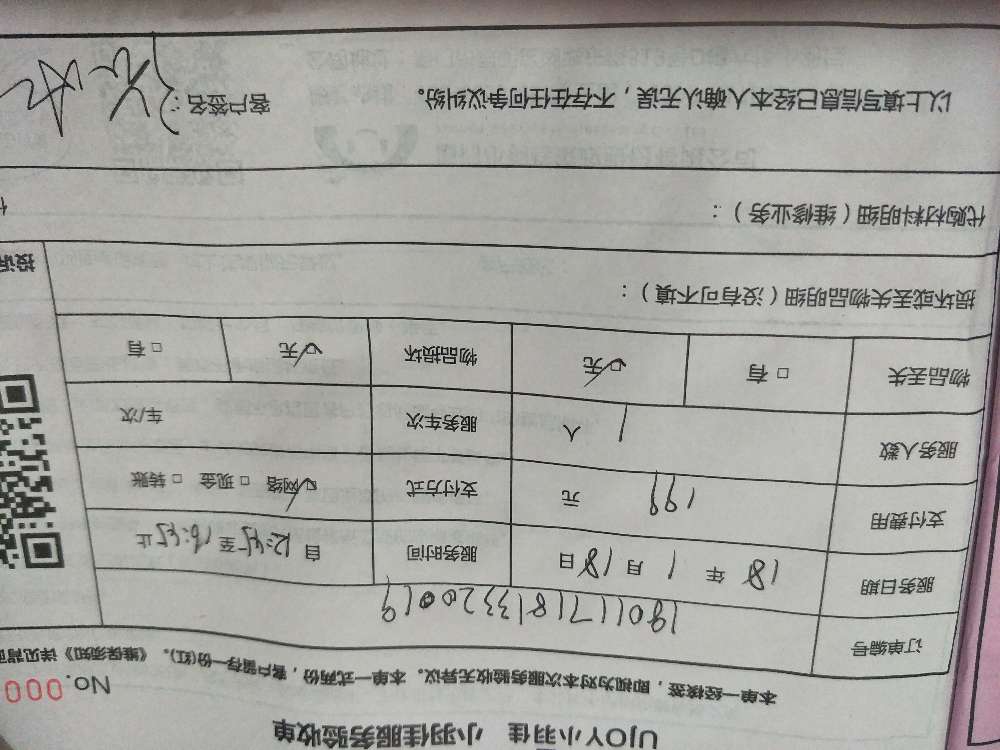 UJOY小羽佳 小羽佳服务验收单
No.000
本单一经核签，即视为对本次服务验收无异议。本单一式两份，客户留存一份(红)。《维保须知》详见背
订单编号 1801171813320019
服务日期 18 年 1 月 18 日 服务时间 自 12:45 至 16:45 止
支付费用 199 元 支付方式 ☑网络 □现金 □转账
服务人数 1 人 服务车次 车/次
物品丢失 □有 ☑无 物品损坏 ☑无 □有
损坏或丢失物品明细（没有可不填）：
投诉
代购材料明细（维修业务）：
以上填写信息已经本人确认无误，不存在任何争议纠纷。 客户签名：